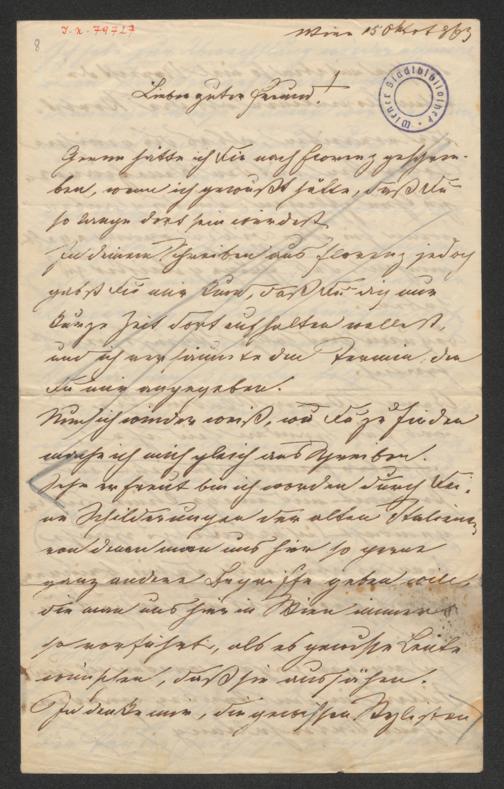 I. N. 79727
8
Wien 15 Okt 863
Wiener Stadtbibliothek
Lieber guter Freund!
Gerne hätte ich Dir nach Florenz geschrie-
ben, wenn ich gewußt hätte, daß Du
so lange dort sein würdest.
In deinem Schreiben aus Florenz jedoch
gabst Du mir kund, daß Du dich nur
kurze Zeit dort aufhalten wollest,
und ich versäumte den Termin, den
Du mir angegeben.
Nun ich wieder weiß, wo Du zu finden
mache ich mich gleich ans Schreiben.
Sehr erfreut bin ich worden durch Dei-
ne Schilderungen der alten Italiener
von denen man uns hier so gerne
ganz andere Begriffe geben will,
die man uns hier in Wien immer
so vorführt, als es gewisse Leute
wünschen, daß sie aussähen.
Ich denke mir, die gewissen Stylisten